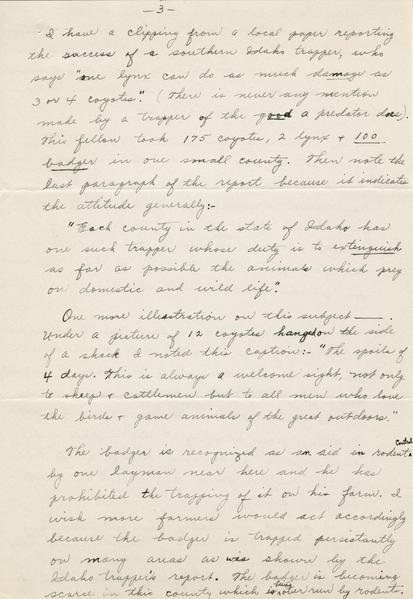 — 3 —
I have a clipping from a local paper reporting
the success of a southern Idaho trapper, who
says "one lynx can do as much damage as
3 or 4 coyotes." (There is never any mention
made by a trapper of the good a predator does).
This fellow took 175 coyotes, 2 lynx + 100
badger in one small county. Then note the
last paragraph of the report because it indicates
the attitude generally:-
"Each county in the state of Idaho has
one such trapper whose duty is to extinguish
as far as possible the animals which prey
on domestic and wild life".
One more illustration on this subject —.
Under a picture of 12 coyotes hanged on the side
of a shack I noted this caption:- "The spoils of
4 days. This is always a welcome sight, not only
to sheep + cattlemen but to all men who love
the birds + game animals of the great outdoors."
The badger is recognized as an aid in rodent control
by one layman near here and he has
prohibited the trapping of it on his farm. I
wish more farmers would act accordingly
because the badger is trapped persistantly
on many areas as was shown by the
Idaho trapper's report. The badger is becoming
scarce in this county which is being over run by rodents.